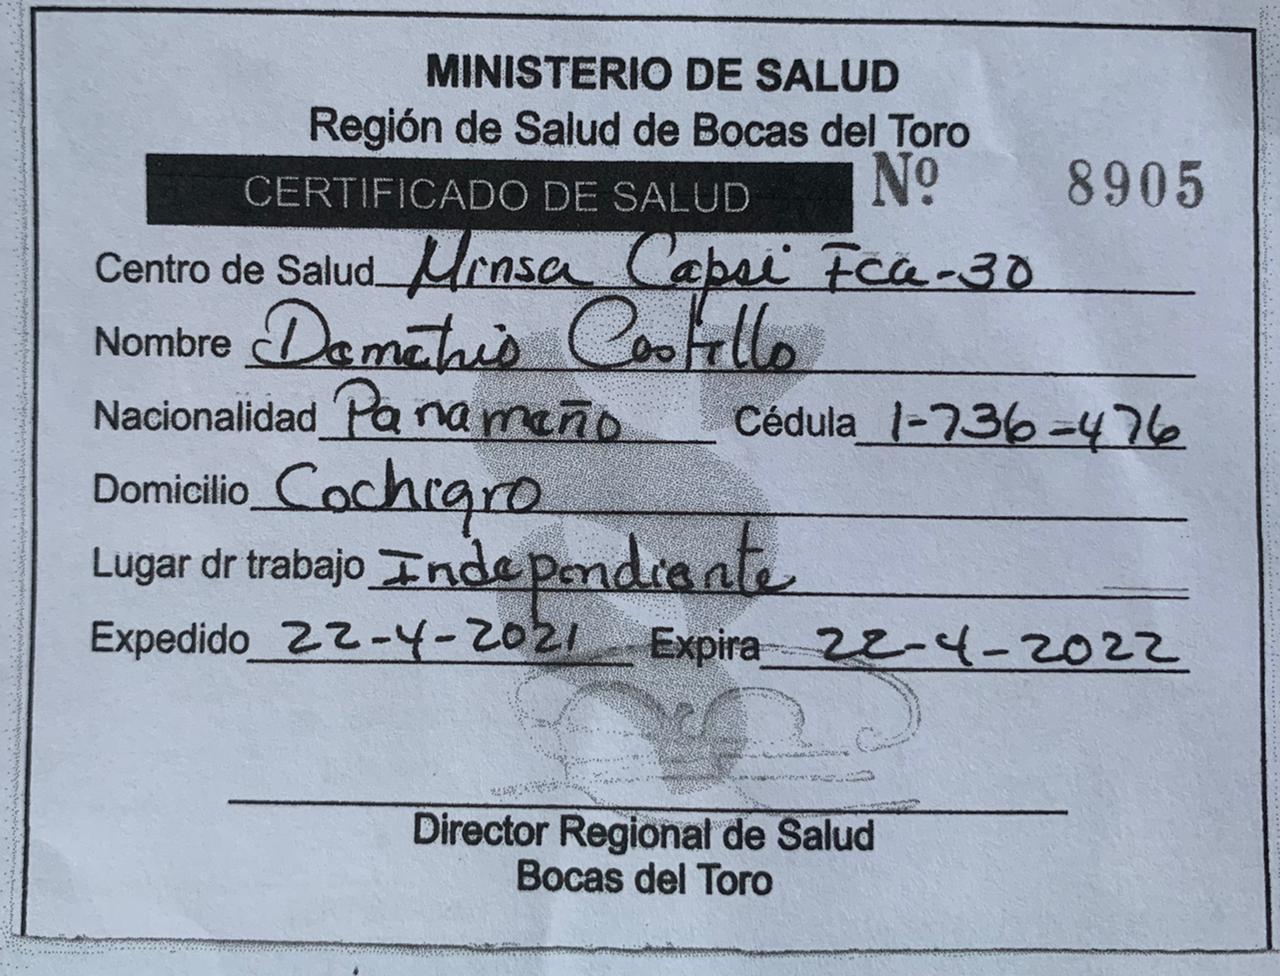 MINISTERIO DE SALUD
Región de Salud de Bocas del Toro
CERTIFICADO DE SALUD Nº 8905
Centro de Salud Minsa Capsi Fca-30
Nombre Demetrio Castillo
Nacionalidad Panameño Cédula 1-736-476
Domicilio Cochigro
Lugar dr trabajo Independiente
Expedido 22-4-2021 Expira 22-4-2022
Director Regional de Salud
Bocas del Toro